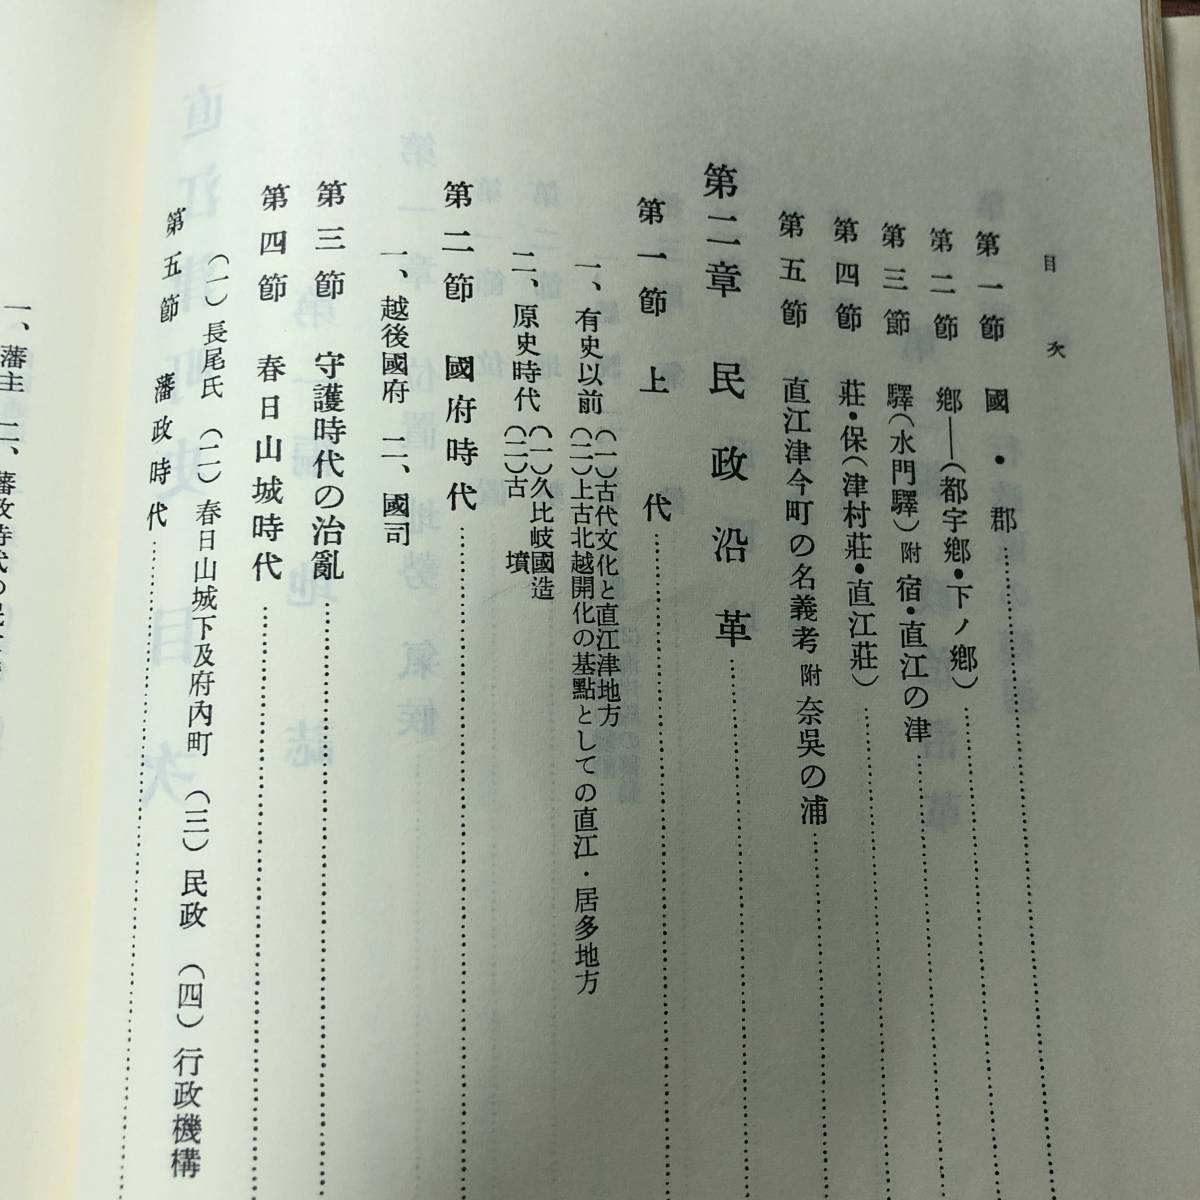 目次
第一節 國・郡
第二節 鄕―(都宇鄕・下ノ鄕)
第三節 驛(水門驛)附 宿・直江の津
第四節 莊・保(津村莊・直江莊)
第五節 直江津今町の名義考 附 奈吳の浦
第二章 民政沿革
第一節 上代
一、有史以前
(一)古代文化と直江津地方
(二)上古北越開化の基點としての直江・居多地方
二、原史時代
(一)久比岐國造
(二)古墳
第二節 國府時代
一、越後國府 二、國司
第三節 守護時代の治亂
第四節 春日山城時代
(一)長尾氏 (二)春日山城下及府內町 (三)民政 (四)行政機構
第五節 藩政時代
一、藩主 二、藩政時代の